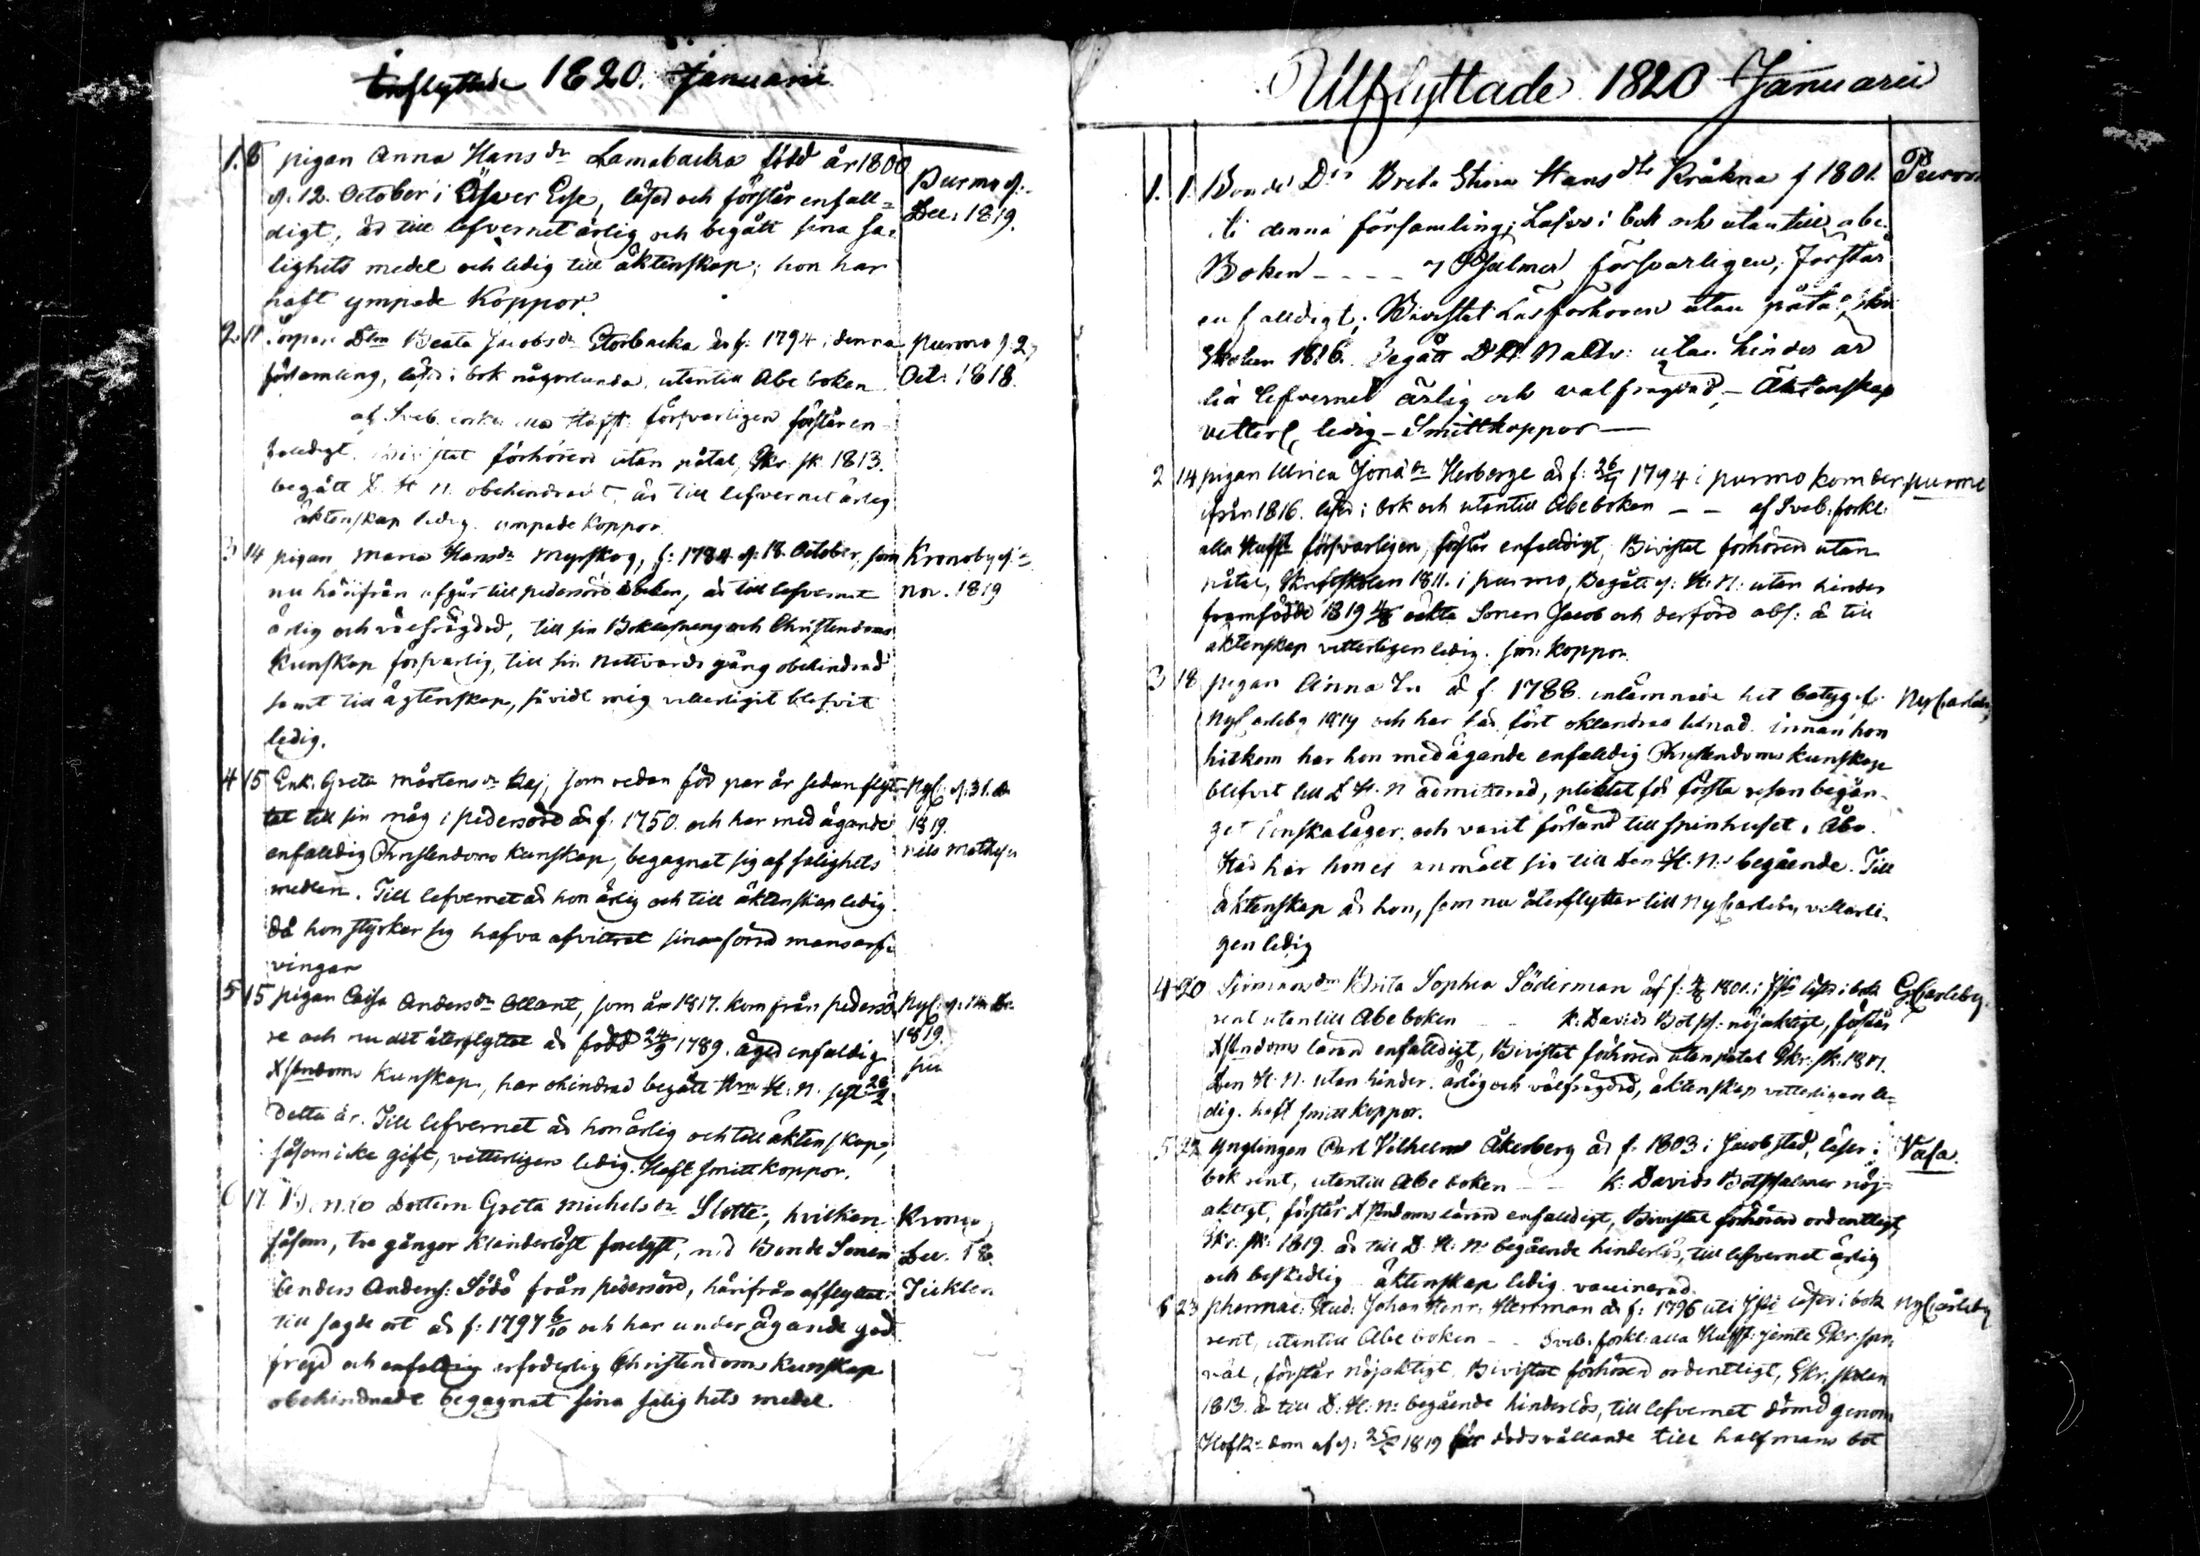 Inflyttade 1820. Januarii
1. 8 pigan Anna Hans dr Lamabacka född år 1800 Purmo d:
d. 12. October i Öfver Esse, läser och förstår enfall= Dec: 1819.
digt, är till lefvernet ärlig och begått sina sa-
lighets medel och ledig till äktenskap; hon har
haft ympade Koppor.
2. 11. Beata Jacobs dr Storbacka är f: 1794 i denna Purmo d. 27
församling, läser i bok någorlunda, utantill Abc boken Oct: 1818.
af Sveb. Hufft: försvarligen förstår en-
faldigt, förhören utan påtal, Skr. sk. 1813.
begått H N. obehindrat, är till lefvernet ärlig
äktenskap ledig. ympade Koppor.
3 14 pigan Maria Hans dr Myrskog, f: 1784 d. 18. October, som Kronoby d:
nu härifrån afgår till pedersöre är till lefvernet nov. 1819
ärlig och välfrägdad, till sin Bokläsning och Christendoms
Kunskap försvarlig, till sin Nattvards gång obehindrad
samt till ägtenskap, såvidt mig vitterligit blefvit
ledig.
4 15 Enk: Greta Mårtens dr som redan för par år sedan flyt- NyC: d. 31. 
tat till sin måg i pedersöre är f. 1750. och har med ägande 1819.
enfaldig Christendoms Kunskap, begagnat sig af salighets nils
medlen. Till lefvernet är hon ärlig och till äktenskap ledig
då hon styrker sig hafva afvittrat sina förra mans arf-
vingar
5 15 pigan Caisa Anders dr Allant, som år 1817. kom från pedersö- NyC:
re och nu dit återflyttat är född 24/9 1789. äger enfaldig 1819.
Xstendoms Kunskap, har ohindrad begått H: N.
Detta år. Till lefvernet är hon ärlig och till äktenskap,
såsom icke gift, vitterligen ledig. Haft smitt koppor.
6 17. Dottern Greta Michels dr Slotte, hvilken Krono
såsom, tre gångor klanderlöst förelyst, med Bonde Sonen Dec. 18.
Anders Anders: Södö från pedersöre, härifrån afflyttat
till sagde ort är f: 1797 6/10 och har under ägande god
frejd och enfaldig erfoderlig Christendoms Kunskap
obehindrade begagnat sina salighets medel.
Utflyttade 1820 Januarii
1. 1. Bonde D:r Greta Stina Hans dtr Kråkna f 1801. Purmo
i denna församling; Läser i bok och utantill abc
Boken - - - - Psalmer försvarligen, förstår
enfalldigt; Bivistat Läsförhören utan påtal,
Skolan 1816. Begått Nattv: utan hinder är
till lefvernet ärlig och välfrägdad, - Äktenskap
vitterl. ledig - Smittkoppor —
2 14 pigan Ulrica Jona dr Herberge är f: 26/ 1794 i purmo kom der purmo
ifrån 1816. läser i bok och utantill Abc boken - - af Sveb: förkl:
alla Hufft: försvarligen, förstår enfalldigt, Bivistat förhören utan
påtal, Skriftskolan 1811. i purmo, Begått d: H: N: utan hinder
framfödde 1819 oäkta Sonen Jacob och derföre abs: är till
äktenskap vitterligen ledig. smi: koppor.
3 18 pigan Anna är f. 1788. inlämnade hit betyg fr: NyCarleby
NyCarleby 1819 och har här fört oklandrad lefnad. innan hon
hitkom har hon med ägande enfalldig Christendoms Kunskap
blifvit till H. N admitterad, pliktat för första resan begån-
get lönskaläger och varit förfänd till spinhuset i Åbo.
Här har hon ej anmält sig till Den H. N:s begående. Till
äktenskap är hon, som nu återflyttar till NyCarleby vitterli-
gen ledig
4 20 Brita Sophia Söderman är f: 1801. i läser i bok GCarleby.
rent utantill Abc boken - - K: Davids Botps: nöjaktigt, förstår
Xstendoms läran enfalldigt, Bivistat förhören utan påtal Skr: sk: 1801.
Den H. N: utan hinder. ärlig och välfrägdad, äktenskap vitterligen le-
dig. haft smitt koppor.
5 22 Ynglingen Carl Vilhelm Åkerberg är f. 1803 i Jacobstad, läser i Vasa.
bok rent, utantill Abc boken - - K. Davids Botpsalmer nöj-
aktigt, förstår Xstendoms läran enfalldigt, Bivistat förhören ordentligt
Skr. sk: 1819. är till D. H. N: begående hinderlös, till lefvernet ärlig
och beskedlig äktenskap ledig. vaccinerad.
6 23 pharmac: Stud: Johan Henr: Herrman är f: 1796 uti läser i bok NyCarleby
rent, utantill Abc boken - - Sveb: förkl: alla Hufft: jemte
väl, förstår nöjaktigt. Bivistat förhören ordentligt, Skr: skolan
1813. är till D: H: N: begående hinderlös, till lefvernet dömd genom
HofR:s dom af d: 25/ 1819 för dödsvållande till half mans bot